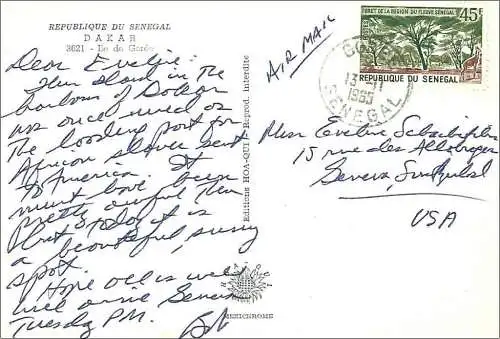 REPUBLIQUE DU SENEGAL
DAKAR
3621 - Ile de Gorée
Dear Eveline:
This Island in the
harbor of Dakar
was once used as
the loading port for
African slaves sent
to America. It
must have been
pretty awful then
but today it is
a beautiful, sunny
spot.
Hope all is well
will arrive Geneva
Tuesday P.M.
Bob
Editions HOA-QUI Reprod. Interdite
MEXICHROME
AIR MAIL
FORET DE LA REGION DU FLEUVE SENEGAL
45F
POSTES
REPUBLIQUE DU SENEGAL
13-11
1965
SENEGAL
Miss Eveline
15 rue des Allobroges
Geneva, Switzerland
USA